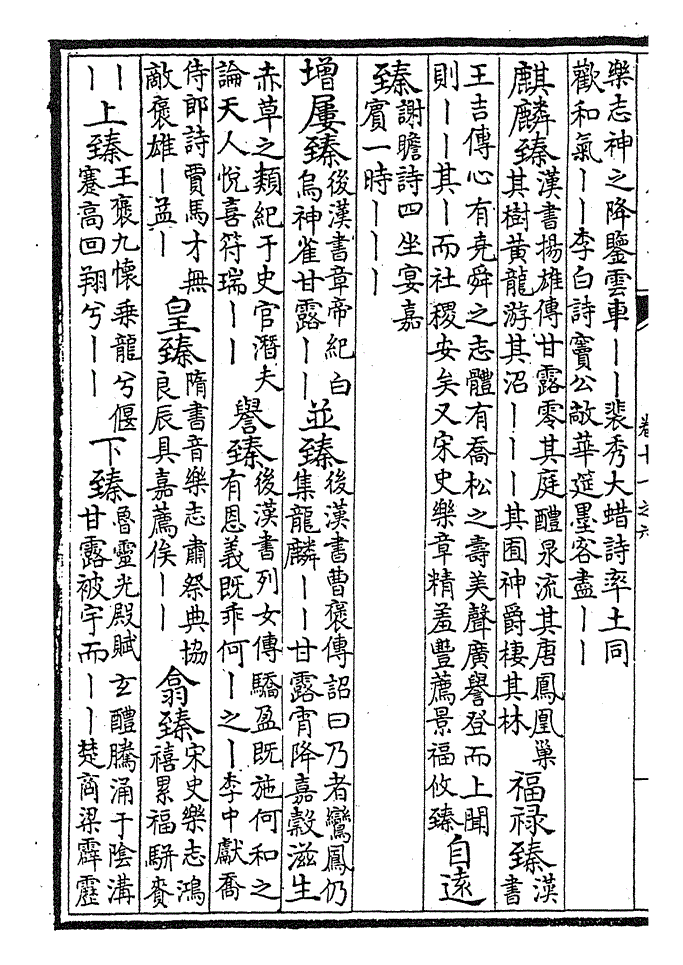 樂志神之降鑒雲車丨丨裴秀大蜡詩率土同
歡和氣丨丨李白詩竇公敵華筵墨客盡丨丨
麒麟臻漢書揚雄傳甘露零其庭醴泉流其唐鳳凰巢
其樹黃龍游其沼丨丨丨其囿神爵棲其林
福祿臻漢
書
王吉傳心有堯舜之志體有喬松之壽美聲廣譽登而上聞
則丨丨其丨而社稷安矣又宋史樂章精羞豐薦景福攸臻
自遠
臻謝瞻詩四坐宴嘉
賓一時丨丨丨
增屢臻後漢書章帝紀白
烏神雀甘露丨丨
並臻後漢書曹褒傳詔曰乃者鸞鳳仍
集龍麟丨丨甘露宵降嘉穀滋生
赤草之類紀于史官潛夫
論天人悅喜符瑞丨丨
譽臻後漢書列女傳驕盈既施何和之
有恩義既乖何丨之丨李中獻喬
侍郎詩賈馬才無
敵褒雄丨孟丨
皇臻隋書音樂志肅祭典協
良辰具嘉薦俟丨丨
翕臻宋史樂志鴻
禧累福駢賚
丨
丨
上臻王褒九懷乘龍兮偃
蹇高回翔兮丨丨
下臻魯靈光殿賦玄醴騰涌于陰溝
甘露被宇而丨丨楚商梁霹靂
卷十一之六